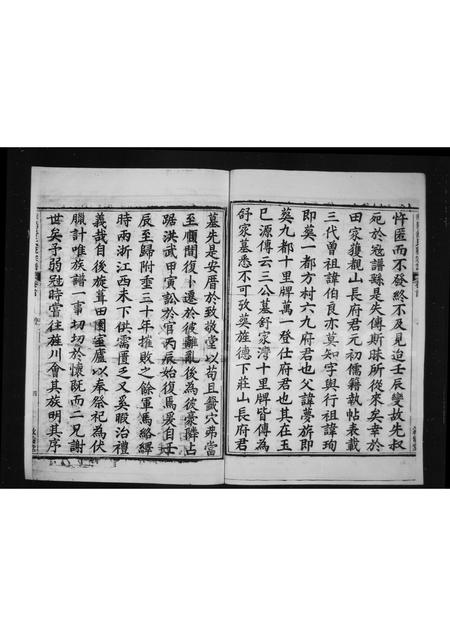 忤匿而不發終不及見迨壬辰變故先叔
宛於冦譜繇是失傳斯昧所從來矣幸於
田家獲覩山長府君元初儒籍執帖表載
三代曾祖諱伯良亦莫知字與行祖諱珣
即葬一都方村六九府君也父諱夢旂即
葬九都十里牌萬一登仕府君也其在玉
巳源傳云三公墓舒家灣十里牌皆傳為
舒家墓悉不可攷葬旌德下莊山長府君
墓先是安厝於致敬堂以苟且蠶穴弗當
至順間復卜遷於彼亂後為彼豪僧占
踞洪武甲寅訟於官丙辰始復焉爰自壬
辰至歸附垂三十年摧敗之餘軍馬絡繹
時兩浙江西未下供需匱乏又奚暇治禮
義哉自後旋葺田園室廬以奉祭祀為伏
臘計唯族譜一事切切於懷既而二兄謝
世矣予弱冠時嘗往旌川會其族明其序